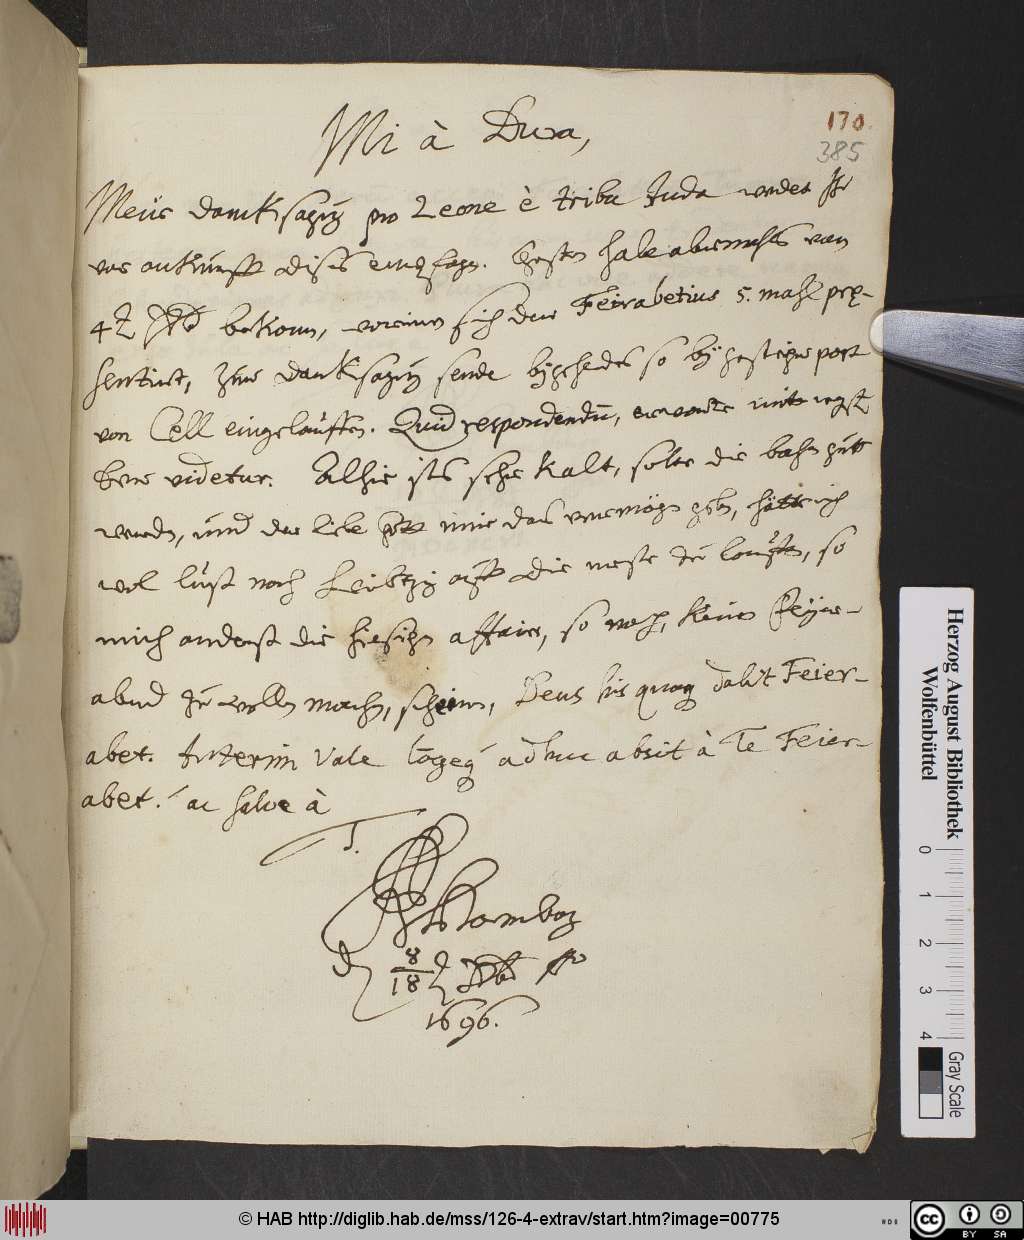 170.
385
Mi à Dura,
Meine dancksagung pro Leone è tribu Juda werden Sie
vor ankunfft dises empfangen. Gestern habe abermahls vom
4t. Xbr bekommen, worinnen sich der Feirabetius 5. mahl præ-
sentiret, seine dancksagung sende so bey gestriger post
von Cell eingelauffen. Quid respondendum,
bene videtur. Alhie ists sehr kalt, solte die bahn gutt
werden, und der liebe Gott mir das vermögen geben, hätte ich
wol lust nach Leibtzig auff die mess zu lauffen, so
mich anderst die hiesigen affairen, so noch keinen Feyer-
abend zu wollen machen, scheinen, Deus his quoq dabit Feier-
abet. Interim Vale longeq adhuc absit à Te Feier-
abet. ac salve à
T.
8/18 Xbr
1696.
Herzog August Bibliothek
Wolfenbüttel
0 1 2 3 4
Gray Scale
© HAB http://diglib.hab.de/mss/126-4-extrav/start.htm?image=00775
cc BY SA